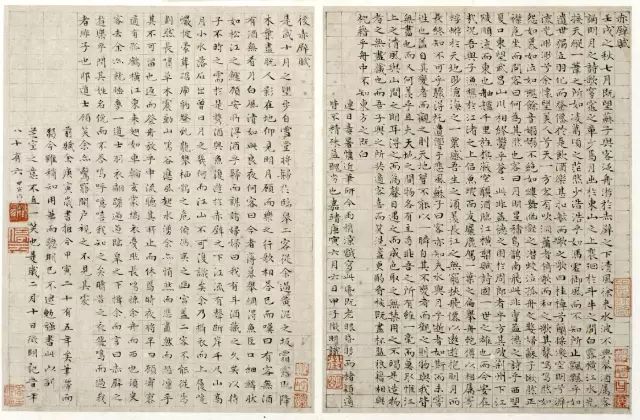 赤壁賦
壬戌之秋七月既望蘇子與客泛舟於赤壁之下清風徐來水波不興舉酒屬客
誦明月之詩歌窈窕之章少焉月出於東山之上裴回於斗牛之間白露橫江水光
接天縱一葦之所如凌萬頃之茫然浩浩乎如馮虛御風而不知所止飄飄如
遺世獨立羽化而登僊於是飲酒樂甚扣舷而歌之歌曰桂棹兮蘭槳擊空明兮
流光渺渺兮余懷望美人兮天一方客有吹洞簫者倚歌而和之其聲嗚嗚然如
怨如慕如泣如訴餘音嫋嫋不絕如縷舞幽壑之潛蛟泣孤舟之嫠婦蘇子愀然正
襟危坐而問客曰何為其然也客曰月明星稀烏鵲南飛此非曹孟德之詩乎西望
夏口東望武昌山川相繆鬱乎蒼蒼此非孟德之困於周郎者乎方其破荊州下江
陵順流而東也舳艫千里旌旗蔽空釃酒臨江橫槊賦詩固一世之雄也而今安在
哉況吾與子漁樵於江渚之上侶魚蝦而友麋鹿駕一葉之扁舟舉匏樽以相屬寄
蜉蝣於天地渺滄海之一粟哀吾生之須臾羨長江之無窮挾飛僊以遨遊抱明月而
長終知不可乎驟得託遺響於悲風蘇子曰客亦知夫水與月乎逝者如斯而未嘗
一瞬自其不變者而觀之則物與我
無盡也而又何羨乎且夫天地之間物各有主苟非吾之所有雖一毫而莫取惟江
上之清風與山間之明月耳得之而為聲目遇之而成色取之無禁用之不竭是造物
者之無盡藏也而吾與子之所共
籍相與枕藉乎舟中不知東方之既白
嘉靖庚寅六月六日
徵明識
後赤壁賦
是歲十月之望步自雪堂將歸於臨皋二客從余過黃泥之坂霜露既降
木葉盡脫人影在地仰見明月顧而樂之行歌相答已而嘆曰有客無酒
有酒無肴月白風清如此良夜何客曰今者薄暮舉網得魚巨口細鱗狀
如松江之鱸顧安所得酒乎歸而謀諸婦婦曰我有斗酒藏之久矣以待
子不時之需於是攜酒與魚復遊於赤壁之下江流有聲斷岸千尺山高
月小水落石出曾日月之幾何而江山不可復識矣余乃攝衣而上履巉
巖披蒙茸踞虎豹登虬龍攀棲鶻之危巢俯馮夷之幽宮蓋二客不能從焉
劃然長嘯草木震動山鳴谷應風起水湧余亦悄然而悲肅然而恐凜乎
其不可留也返而登舟放乎中流聽其所止而休焉時夜將半四顧寂寥
適有孤鶴橫江東來翅如車輪玄裳縞衣戛然長鳴掠余舟而西也須臾
客去余亦就睡夢一道士羽衣翩躚過臨皋之下揖余而言曰赤壁之
遊樂乎問其姓名俛而不答嗚呼噫嘻我知之矣疇昔之夜飛鳴而過我
者非子也耶道士顧笑余亦驚寤開戶視之不見其處
前賦余庚寅歲書抵今甲寅二十有五年矣筆滯而
弱今雖稍知用筆而聰明已不逮勉強書此以副
芝室之意不直一笑也是歲二月十日徵明記時年
八十有六